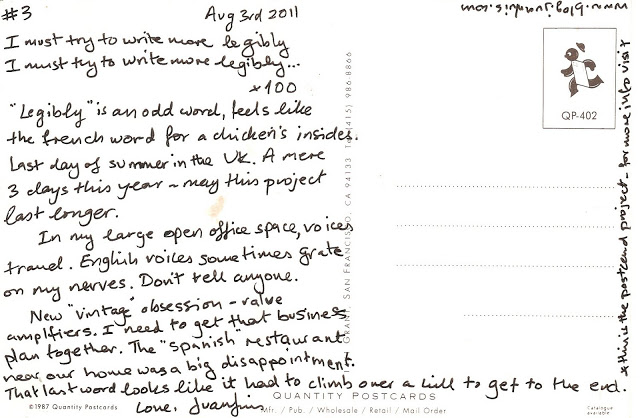 #3 Aug 3rd 2011
I must try to write more legibly
I must try to write more legibly...
*100
"Legibly" is an odd word, feels like
the french word for a chicken's insides.
Last day of summer in the UK. A mere
3 days this year - may this project
last longer.
In my large open office space, voices
travel. English voices sometimes grate
on my nerves. Don't tell anyone.
New "vintage" obsession - valve
amplifiers. I need to get that business
plan together. The "spanish" restaurant
near our home was a big disappointment.
That last word looks like it had to climb over a hill to get to the end.
Love,
©1987 Quantity Postcards
QUANTITY POSTCARDS
Mfr. / Pub. / Wholesale / Retail / Mail Order
Catalogue
available
SAN FRANCISCO, CA 94133 (415) 986 8866
QP-402
* this is the postcard project - for more info visit
www.blog.juanluis.com